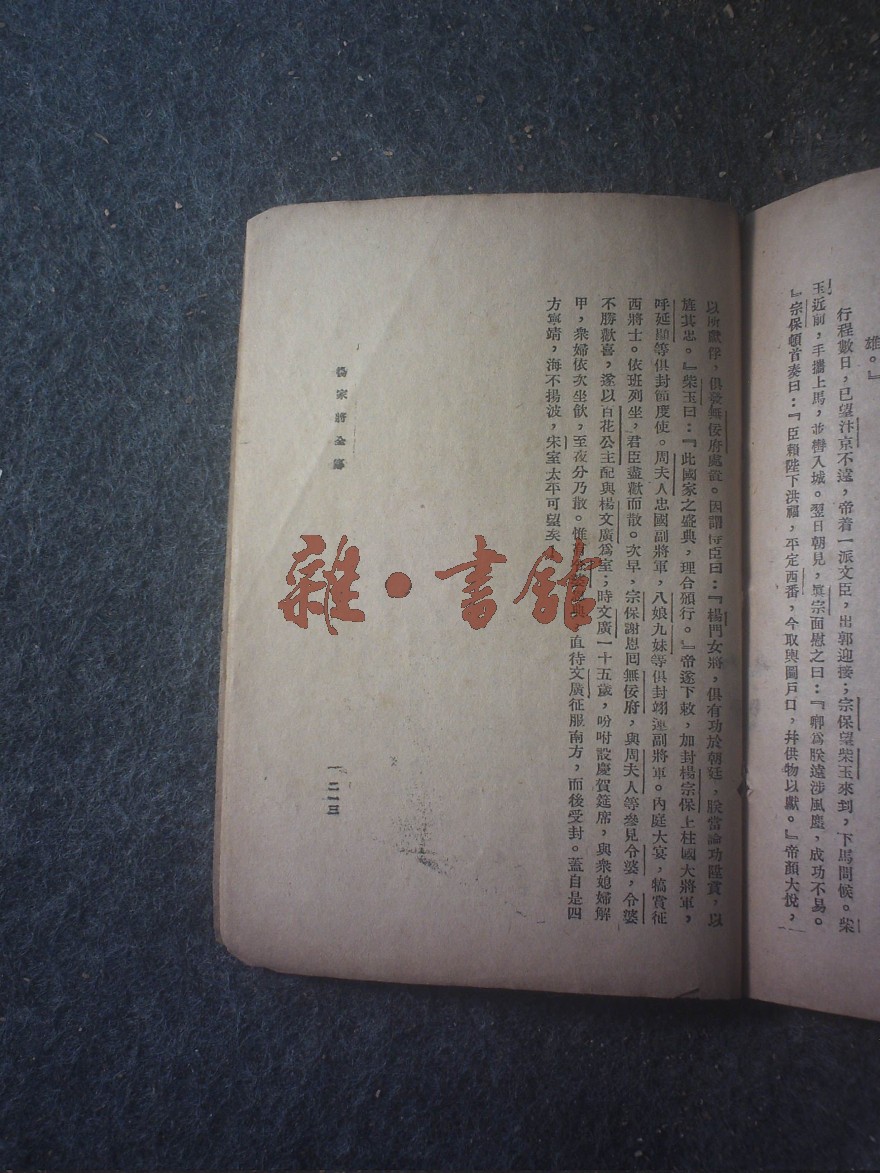 雄。』
行程數日，已望汴京不遠，帝着一派文臣，出郭迎接；宗保望柴玉來到，下馬問候。柴
玉近前，手攜上馬，並轡入城。翌日朝見，眞宗面慰之曰：『卿爲朕遠涉風塵，成功不易。
』宗保頓首奏曰：『臣賴陛下洪福，平定西番，今取輿圖戶口，幷供物以獻。』帝顏大悅，
以所獻俘，俱發無佞府處置。因謂侍臣曰：『楊門女將，俱有功於朝廷，朕當論功陞賞，以
旌其忠。』柴玉曰：『此國家之盛典，理合頒行。』帝遂下敕，加封楊宗保上柱國大將軍，
呼延顯等俱封節度使。周夫人忠國副將軍，八娘九妹等俱封翊運副將軍。內庭大宴，犒賞征
西將士。依班列坐，君臣盡歡而散。次早，宗保謝恩囘無佞府，與周夫人等參見令婆，令婆
不勝歡喜，遂以百花公主配與楊文廣爲室；時文廣一十五歲，吩咐設慶賀筵席，與衆媳婦解
甲，衆婦依次坐飮，至夜分乃散。惟 直待文廣征服南方，而後受封。蓋自是四
方寧靖，海不揚波，宋室太平可望矣！
楊家將全 一二一三
雜·書館